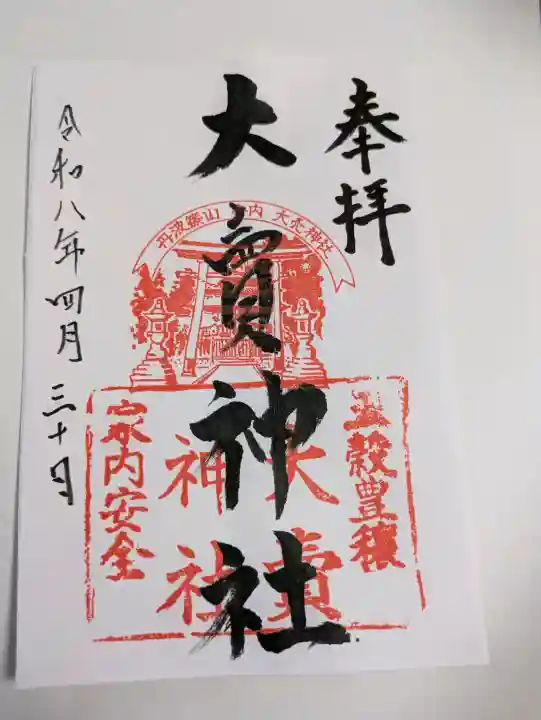 奉拝
大賣神社
丹波篠山 寺内 大売神社
五穀豊穣
大賣
神社
家内安全
令和八年四月三十日